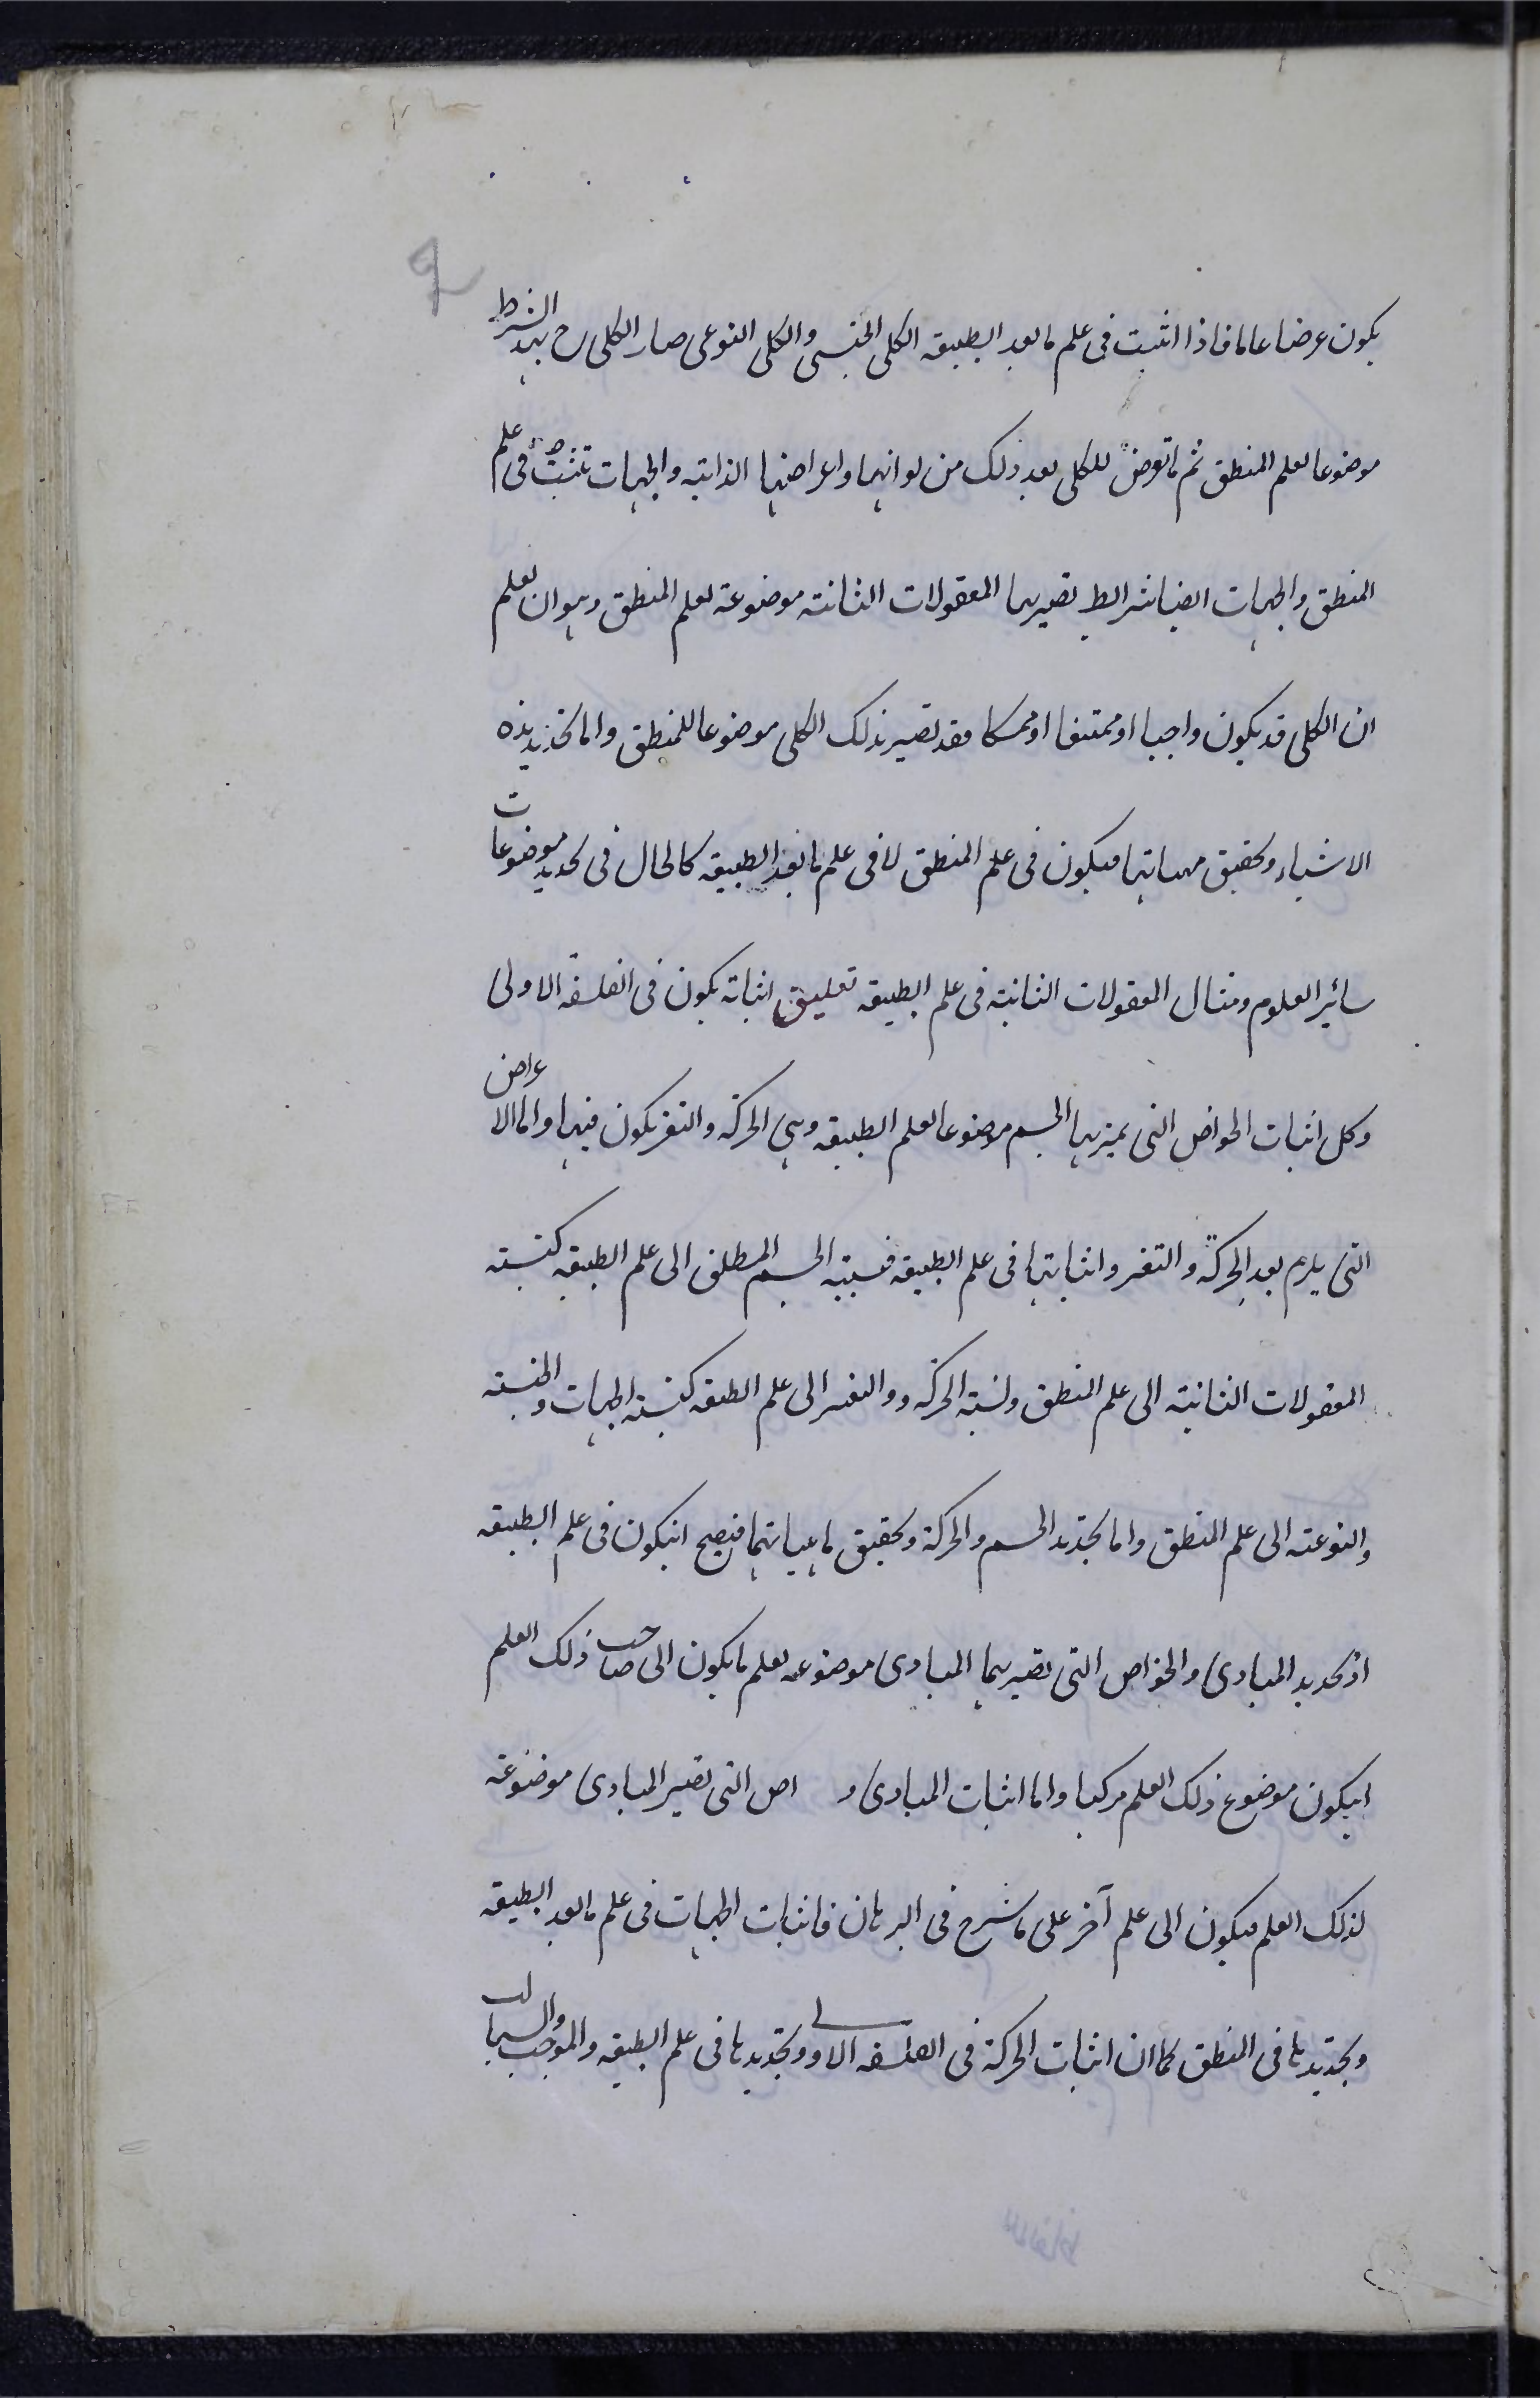 يكون عرضا عاما فاذا اثبت فى علم ما بعد الطبيعه الكلى الجنسى والكلى النوعى صار الكلى ح بهذا الشرط
موضوعا لعلم المنطق ثم ما تعرض للكلى بعد ذلك من لوازمها واعراضها الذاتيه والجهات تثبت فى علم
المنطق والجهات ايضا شرايط تصير بها المعقولات الثانيه موضوعة لعلم المنطق وهو ان تعلم
ان الكلى قد يكون واجبا او ممتنعا او ممكنا فقد تصير بذلك الكلى موضوعا للمنطق واما تحديد هذه
الاشياء وتحقيق مهياتها فيكون فى علم المنطق لا فى علم ما بعد الطبيعه كالحال فى تحديد موضوعات
سائر العلوم ومثال المعقولات الثانيه فى علم الطبيعه تعليق اثباته يكون فى الفلسفه الاولى
وكل اثبات الخواص التى يميز بها الجسم موضوعا لعلم الطبيعه وهى الحركة والتغير يكون فيها واما الاعراض
التى يلزم بعد الحركة والتغير واثباتها فى علم الطبيعه فنسبة الجسم المطلق الى علم الطبيعه كنسبة
المعقولات الثانية الى علم المنطق ونسبة الحركه و والتغير الى علم الطبيعه كنسبة الجهات والجنسية
والنوعية الى علم المنطق واما تحديد الجسم والحركة وتحقيق ماهياتهما فيصح ان يكون فى علم الطبيعه
اذ تحديد المبادى والخواص التى تصير بها المبادى موضوعه لعلم ما يكون الى صاحب ذلك العلم
ايكون موضوع ذلك العلم مركبا واما اثبات المبادى و اص التى تصير المبادى موضوعة
لذلك العلم فيكون الى علم آخر على ما شرح فى البرهان فاثبات الجهات فى علم ما بعد الطبيعه
وتحديدها فى المنطق كما ان اثبات الحركة فى الفلسفه الاولى وتحديدها فى علم الطبيعه والموجب والسالب